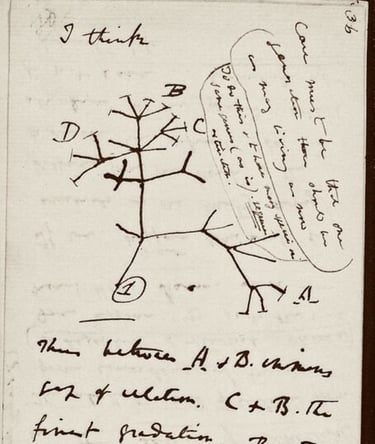 36
I think
Case must be that one
generation then should be
as many living as now
To do this & to have many species in
same genus (as is) requires
extinction.
B
C
D
A
1
Thus between A & B. immense
gap of relation. C & B. the
finest gradation